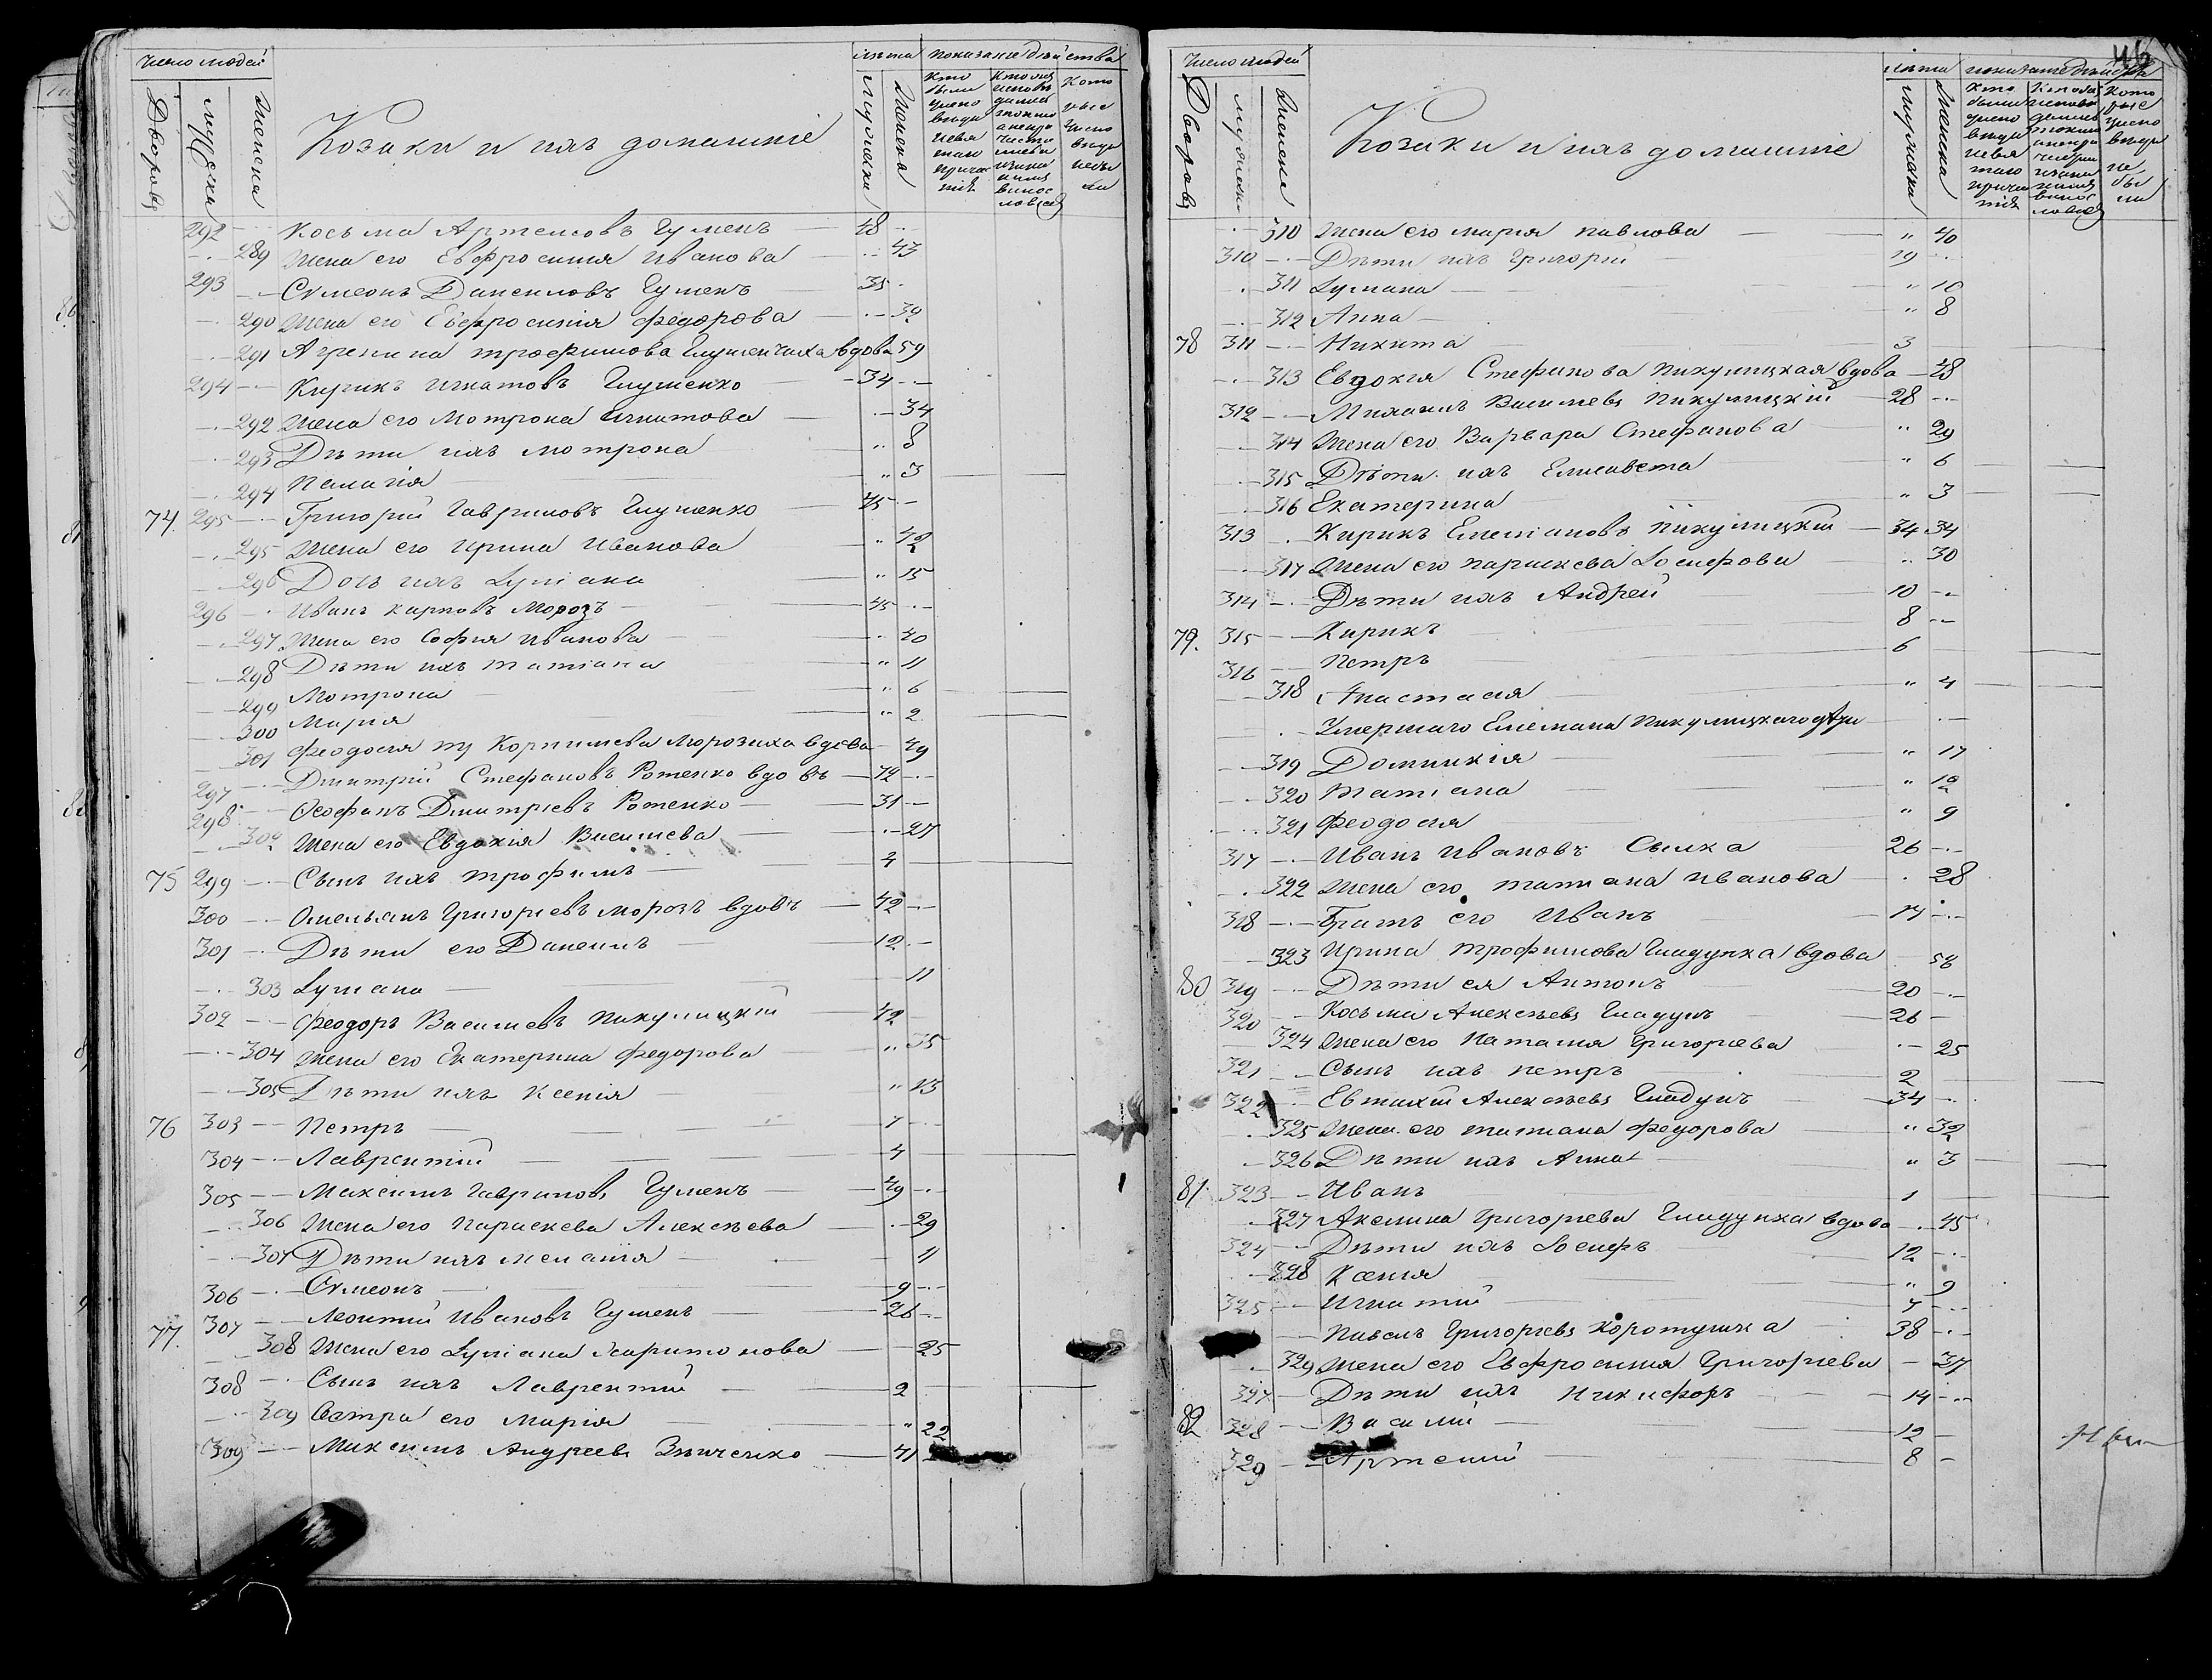 Число людей
лѣта показание дѣйства
Дворовъ
Мужеска
Женска
Козаки и ихъ домашніе
Мужеска
Женска
292 Косьма Артемовъ Гуменъ 48
289 Жена его Евфросинія Иванова 43
293 Сѵмеонъ Даниловъ Гуменъ 35
290 Жена его Евфросинія Федорова 32
291 Агрепина Трофимова вдова 59
294 Кирикъ Игнатовъ 34
292 Жена его Мотрона Игнатова 34
293 Дѣти ихъ Мотрона 8
294 Пелагія 3
74. 295 Григорій Гавриловъ 45
295 Жена его Ирина Иванова 42
296 Дочь ихъ Іуліана 15
296 Иванъ Карповъ Морозъ 45
297 Жена его Софія Иванова 40
298 Дѣти ихъ Татіана 11
299 Мотрона 6
300 Марія 2
301 Феодосія Корнилиева Морозиха вдова 49
297 Дмитрій Стефановъ Ротенко вдовъ 72
298 Феофанъ Дмитріевъ Ротенко 31
302 Жена его Евдокія Василиева 27
75 299 Сынъ ихъ Трофимъ 4
300 Омельянъ Григоріевъ Морозъ вдовъ 42
301 Дѣти его Даниилъ 12
303 Іуліана 11
302 Феодоръ Василиевъ Пикулицкій 42
304 Жена его Екатерина Федорова 35
305 Дѣти ихъ Ксенія 13
76 303 Петръ 7
304 Лаврентій 4
305 Максимъ Гавриловъ Гуменъ 49
306 Жена его Параскева Алексѣева 29
307 Дѣти ихъ Меланія 11
306 Сѵмеонъ 9
307 Леонтій Ивановъ Гуменъ 26
77. 308 Жена его Іуліана Харитонова 25
308 Сынъ ихъ Лаврентій 2
309 Сестра его Марія 22
309 Максимъ Андреевъ Зѣнченко 41
46
Число людей
лѣта показание дѣйства
Дворовъ
Мужеска
Женска
Козаки и ихъ домашніе
Мужеска
Женска
310 Жена его Марія Павлова 40
310 Дѣти ихъ Григорій 19
311 Іуліана 10
312 Анна 8
78 311 Никита 3
313 Евдокія Стефанова Пикулицкая вдова 48
312 Михаилъ Василиевъ Пикулицкій 28
314 Жена его Варвара Стефанова 29
315 Дѣти ихъ Елисавета 6
316 Екатерина 3
313 Кирикъ Емелиановъ Пикулицкій 34 34
317 Жена его Параскева Іосифова 30
314 Дѣти ихъ Андрей 10
79. 315 Кирикъ 8
316 Петръ 6
318 Анастасія 4
Умершаго Емелиана Пикулицкаго дѣти
319 Домникія 17
320 Татіана 12
321 Феодосія 9
317 Иванъ Ивановъ 26
322 Жена его Татиана Иванова 28
318 Братъ его Иванъ 17
323 Ирина Трофимова Гладунка вдова 58
80 319 Дѣти ея Антонъ 20
320 Косьма Алексѣевъ Гладунъ 26
324 Жена его Наталія Григориева 25
321 Сынъ ихъ Петръ 2
322 Евтихій Алексѣевъ Гладунъ 34
325 Жена его Татиана Федорова 32
326 Дѣти ихъ Анна 3
81. 323 Иванъ 1
327 Акелина Григориева Гладунка вдова 45
324 Дѣти ихъ Іосифъ 12
328 Ксенія 9
325 Игнатій 7
Павелъ Григорьевъ Коротушка 38
329 Жена его Евфросинія Григориева 37
327 Дѣти ихъ Никифоръ 14
82 328 Василій 12
329 Артемій 8